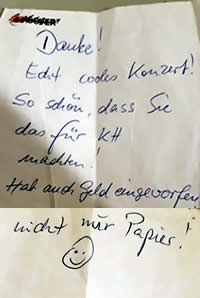 Danke!
Echt cooles Konzert!
So schön, dass Sie
das für KH
machten!
Hat auch Geld eingeworfen,
nicht nur Papier!